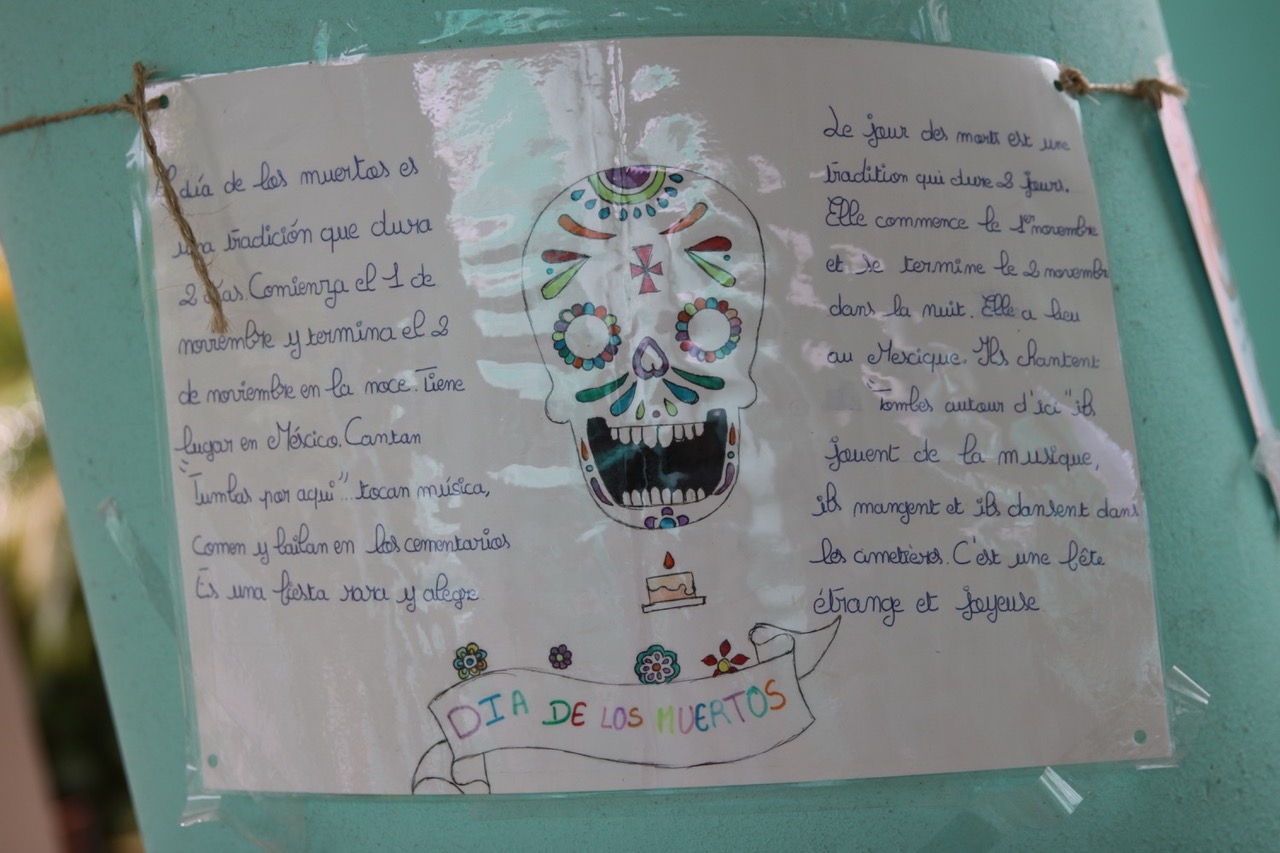 El día de los muertos es
una tradición que dura
2 días. Comienza el 1 de
noviembre y termina el 2
de noviembre en la noce. Tiene
lugar en México. Cantan
"Tumbas por aqui". tocan música,
Comen y bailan en los cementarios
Es una fiesta rara y alegre
Le jour des morts est une
tradition qui dure 2 jours.
Elle commence le 1er novembre
et se termine le 2 novembre
dans la nuit. Elle a lieu
au Mexique. Ils chantent
"Tombes autour d'ici" ils
jouent de la musique,
ils mangent et ils dansent dans
les cimetières. C'est une fête
étrange et joyeuse
DIA DE LOS MUERTOS